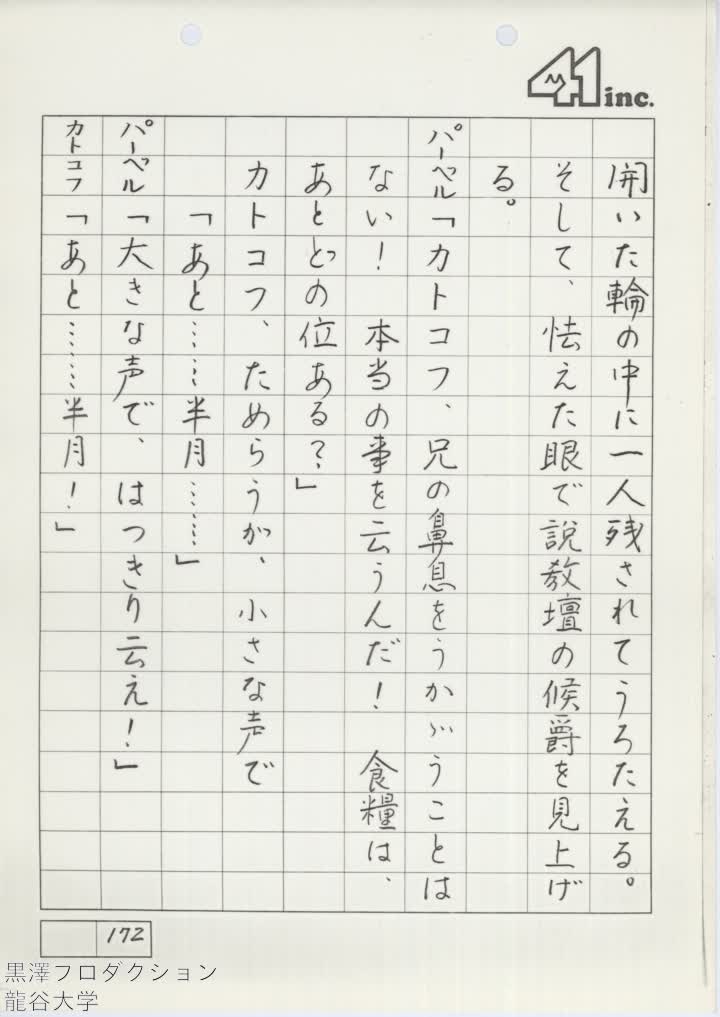 41 inc.
開いた輪の中に一人残されてうろたえる。
そして、怯えた眼で説教壇の候爵を見上げ
る。
パーベル「カトコフ、兄の鼻息をうかゞうことは
ない！　本当の事を云うんだ！　食糧は、
あとどの位ある？」
カトコフ、ためらうが、小さな声で
「あと……半月……」
パーベル「大きな声で、はつきり云え！」
カトコフ「あと……半月！」
172
黒澤フロダクション
龍谷大学